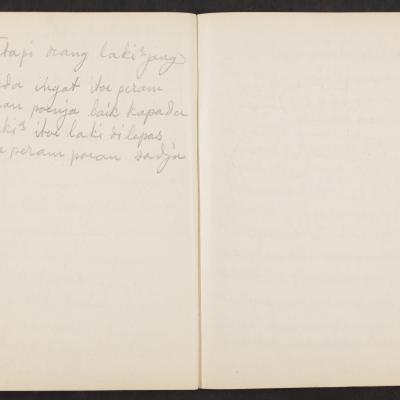 tapi orang laki² jang
ingat itoe peram
poenja baik kapada
itoe laki dilepas
peram poean sadja